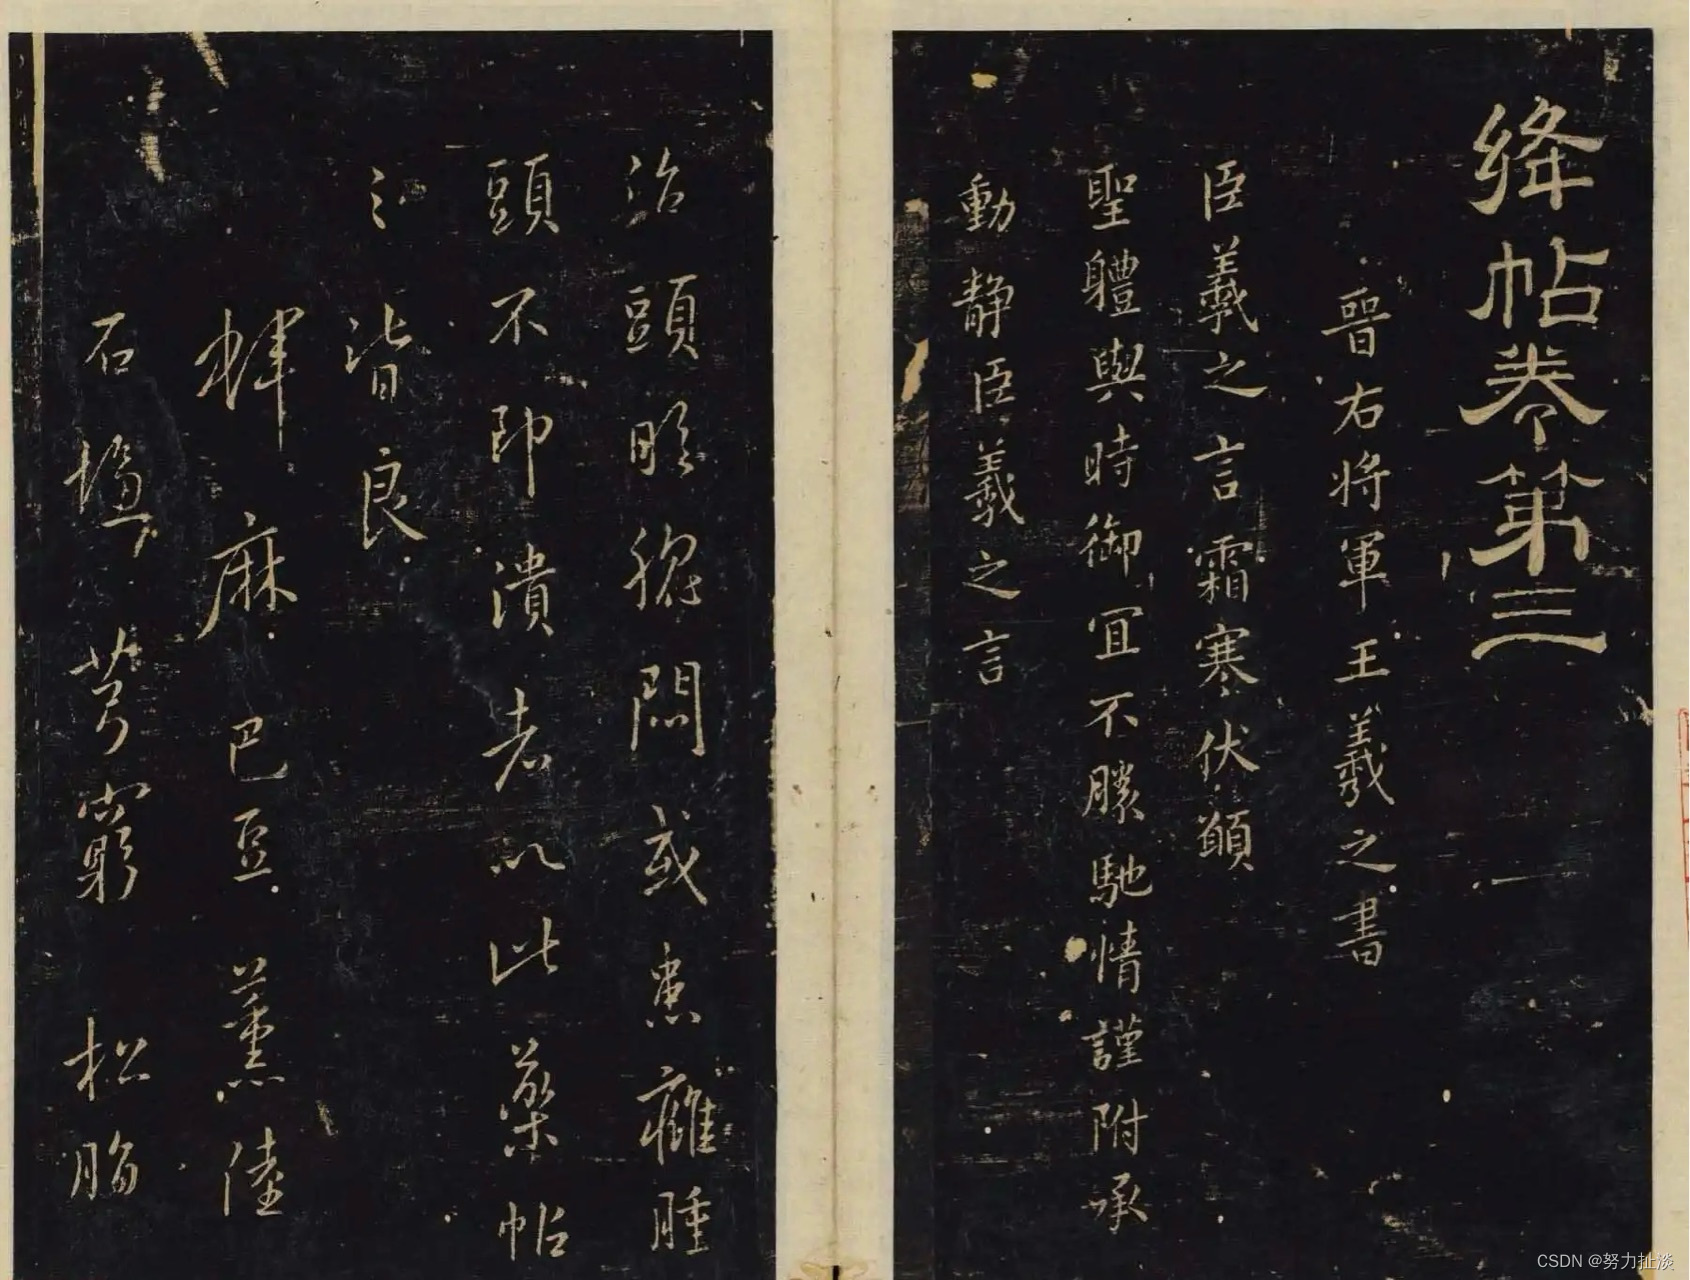 絳帖卷第三
晉右將軍王羲之書
臣羲之言霜寒伏願
聖軆與時御宜不勝馳情謹附承
動静臣羲之言
治頭眩脑悶或患癰腫
頭不即潰者以此藥帖
之皆良
蜱麻 巴豆 薰陸
石塩 芎窮 松脂
CSDN @努力扯淡